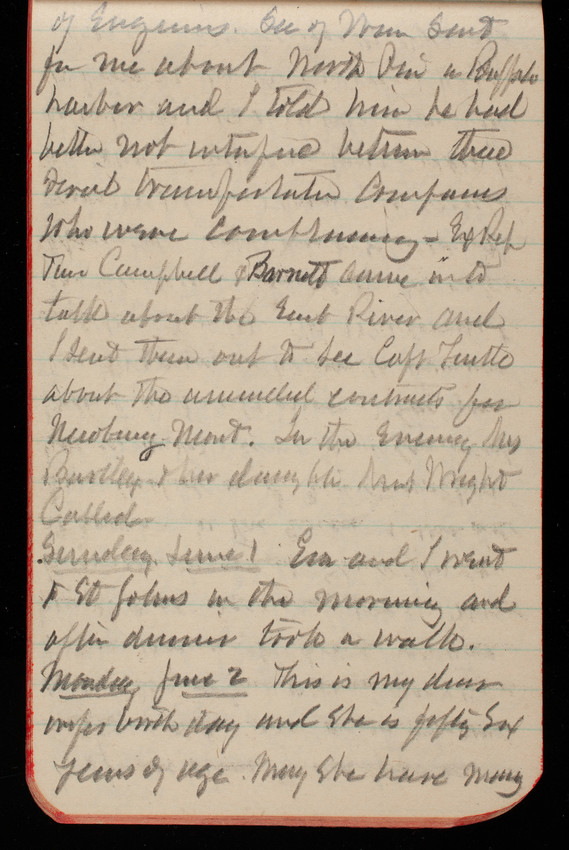 of Engineers. Sec of War sent
for me about North Pier in Buffalo
harbor and I told him he had
better not interfere between these
rival transportation Companies
who were combining - Ex Rep
Tim Campbell & Barnett came in to
talk about the East River and
I sent them out to see Capt
about the contracts for
Newburg Mont. In the Evening Mrs
& her daughter Mrs Wright
Called.
Sunday June 1 Eva and I went
to St Johns in the morning and
after dinner took a walk.
Monday June 2 This is my dear
wifes birth day and she is fifty six
years of age. May she have many